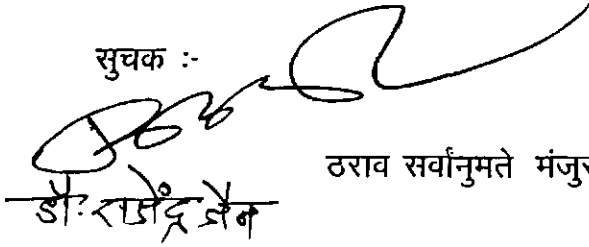 सुचक :-
ठराव सर्वानुमते मंजुर
डॉ. राजेंद्र जैन